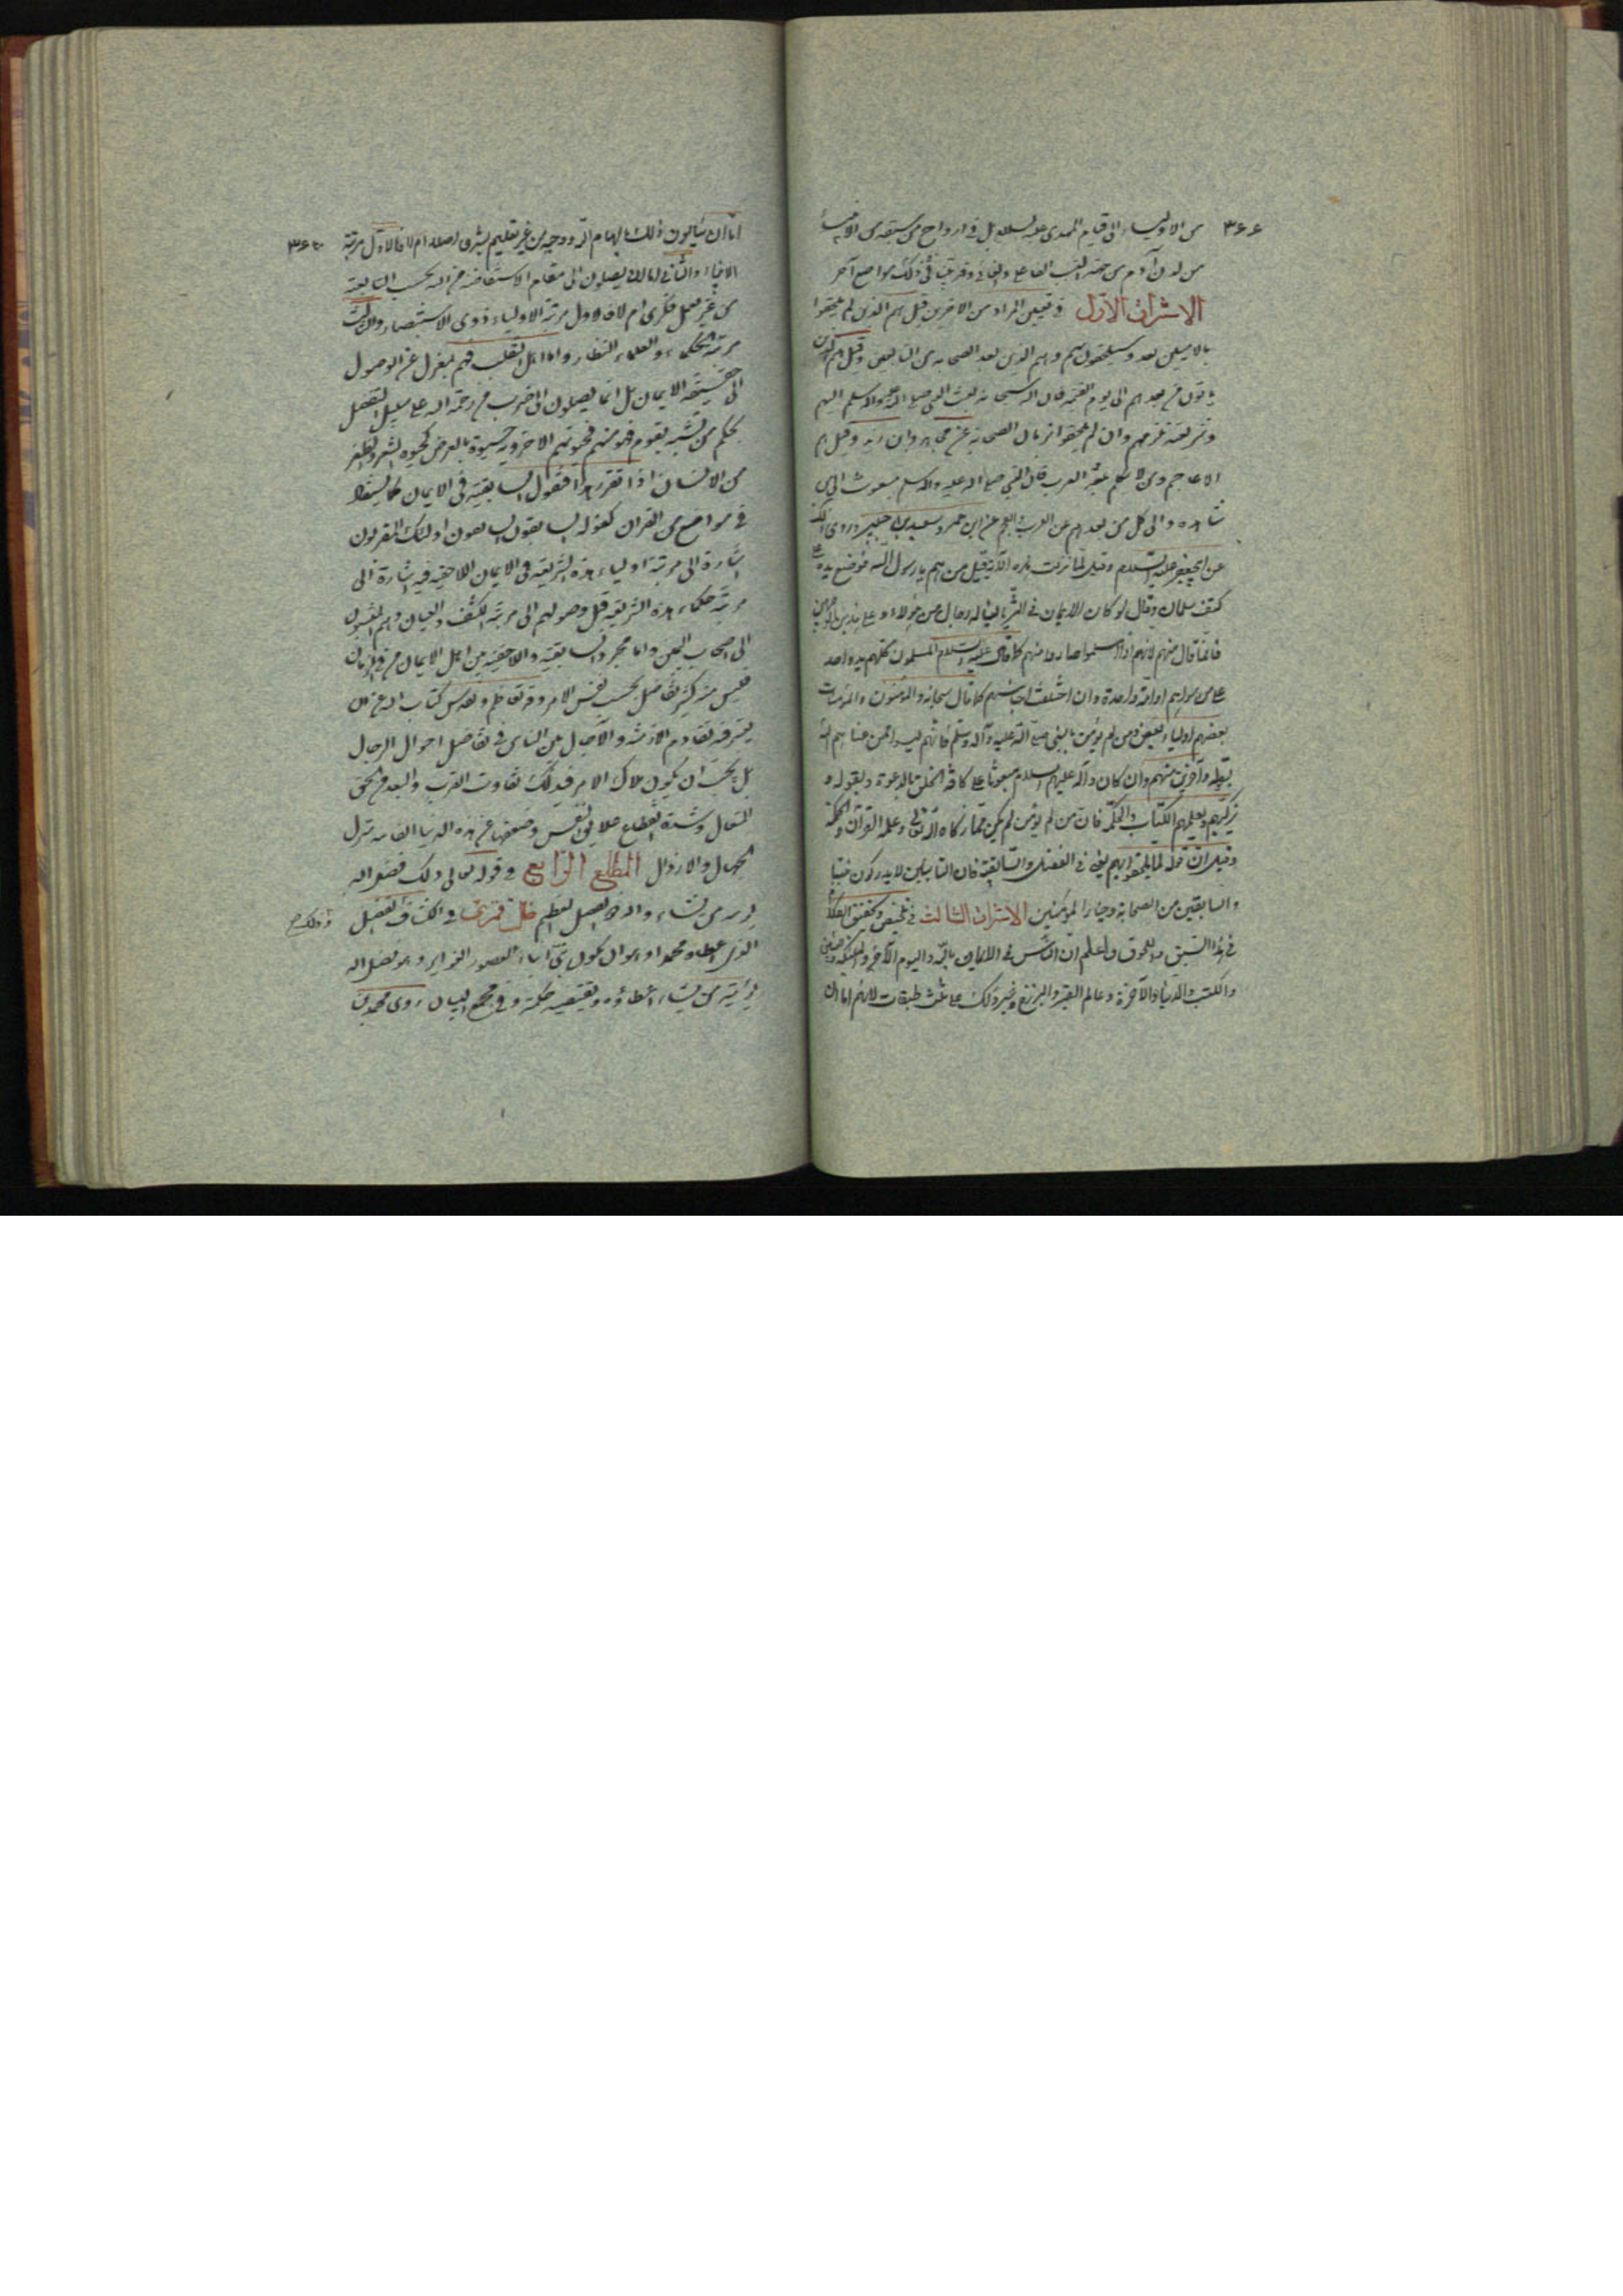 ٣٦٦
من الاولياء الى قيام المهدى عليه السلام بل فى ارواح من سبقه من الانبياء
من لدن آدم من جهة النسب الفاعلى والغائى وقد بيّنا فى ذلك مواضع آخر
الاشراق الاول فى تعيين المراد من الآخرين قيل هم الذين لم يلحقوا
بالاميين بعد وسيلحقون بهم وهم الذين بعد الصحابة من التابعين وقيل هم الذين
ياتون من بعدهم الى يوم القيمة فان الله سبحانه بعث النبى صلى الله عليه وآله وسلم اليهم
وشريعته تلزمهم وان لم يلحقوا بزمان الصحابة عن مجاهد وابن زيد وقيل هم
الاعاجم ومن لا يتكلم بلغة العرب فان النبى صلى الله عليه وآله وسلم مبعوث الى من
شاهده والى كل من بعدهم من العرب والعجم عن ابن عمر وسعيد بن جبير وروى ذلك
عن ابى جعفر عليه السلام وقيل لما نزلت هذه الآية قيل من هم يا رسول الله فوضع يده على
كتف سلمان وقال لو كان الايمان فى الثريا لناله رجال من هؤلاء و على هذين
فانما قال منهم لانهم اذا اسلموا صاروا منهم كما قال عليه السلام المسلمون كلهم يد واحد
على من سواهم او امة واحدة وان اختلفت اجناسهم كما قال سبحانه والمؤمنون والمؤمنات
بعضهم اولياء بعض ومن لم يؤمن بالنبى صلى الله عليه وآله وسلم فانهم ليسوا ممن عناهم الله
بقوله وآخرين منهم وان كان وآله عليهم السلام مبعوثا على كافة الخلق بالدعوة وبقوله و
يزكيهم ويعلمهم الكتاب والحكمة فان من لم يؤمن لم يكن ممن زكاه الله تعالى وعلمه القرآن والحكمة
وقيل ان قوله لما يلحقوا بهم يعنى فى الفضل والسابقة فان التابعين لا يدركون
والسابقين من الصحابة وخيار المؤمنين الاشراق الثالث فى تلخيص وتحقيق
فى هذا السبق واللحوق واعلم ان الناس فى الايمان بالله واليوم الآخر والملئكة والنبيين
والكتب والدنيا والآخرة وعالم القبر والبرزخ وغير ذلك على ثلث طبقات لانهم اما ان
اما ان ينالون ذلك بالهام الله ووحيه من غير تعليم بشرى اصلا ام لا فالاول مرتبة
الانبياء والثانى اما ان يصلون الى مقام الاستفاضة من الله بحسب المتابعة
من غير تعمل فكرى ام لا فالاول مرتبة الاولياء ذوى الاستبصار والثالث
مرتبة الحكماء والعلماء النظار واما اهل التقليد فهم بمعزل عن الوصول
الى حقيقة الايمان بل انما يصلون الى ضرب من رحمة الله على سبيل التطفل
بحكم من تشبه بقوم فهو منهم فحيوتهم الاخروية حيوة بالعرض كحيوة الشعر والظفر
من الانسان اذا تقرر هذا فنقول السابقية فى الايمان كما يستفاد
فى مواضع من القران كقوله السابقون السابقون اولئك المقربون
اشارة الى مرتبة اولياء هذه الشريعة فى الايمان واللاحقية فيه اشارة الى
مرتبة حكماء هذه الشريعة قبل وصولهم الى مرتبة الكشف والعيان وهم المنسوبون
الى اصحاب اليمين واما مجرد السابقية واللاحقية بين اهل الايمان من فى الزمان
فليس منه كثير تفاضل بحسب نفس الامر
تقادم الازمنة والآجال بين الناس فى تفاضل احوال الرجال
بل يجب ان يكون ملاك الامر فى ذلك تفاوت القرب والبعد من الحق
المتعال وشدة انقطاع علائق النفس وضعفها عن هذه الدنيا الفانية منزل
الجهال والارذال المطلع الرابع فى قوله تعالى ذلك فضل الله
يؤتيه من يشاء والله ذو الفضل العظيم قال فى الكشاف الفضل
الذى اعطاه محمدا وهو ان يكون نبى ابناء العصور الغوابر وهو فضل الله
يؤتيه من يشاء اعطاؤه ويقتضيه حكمته وفى مجمع البيان روى محمد بن